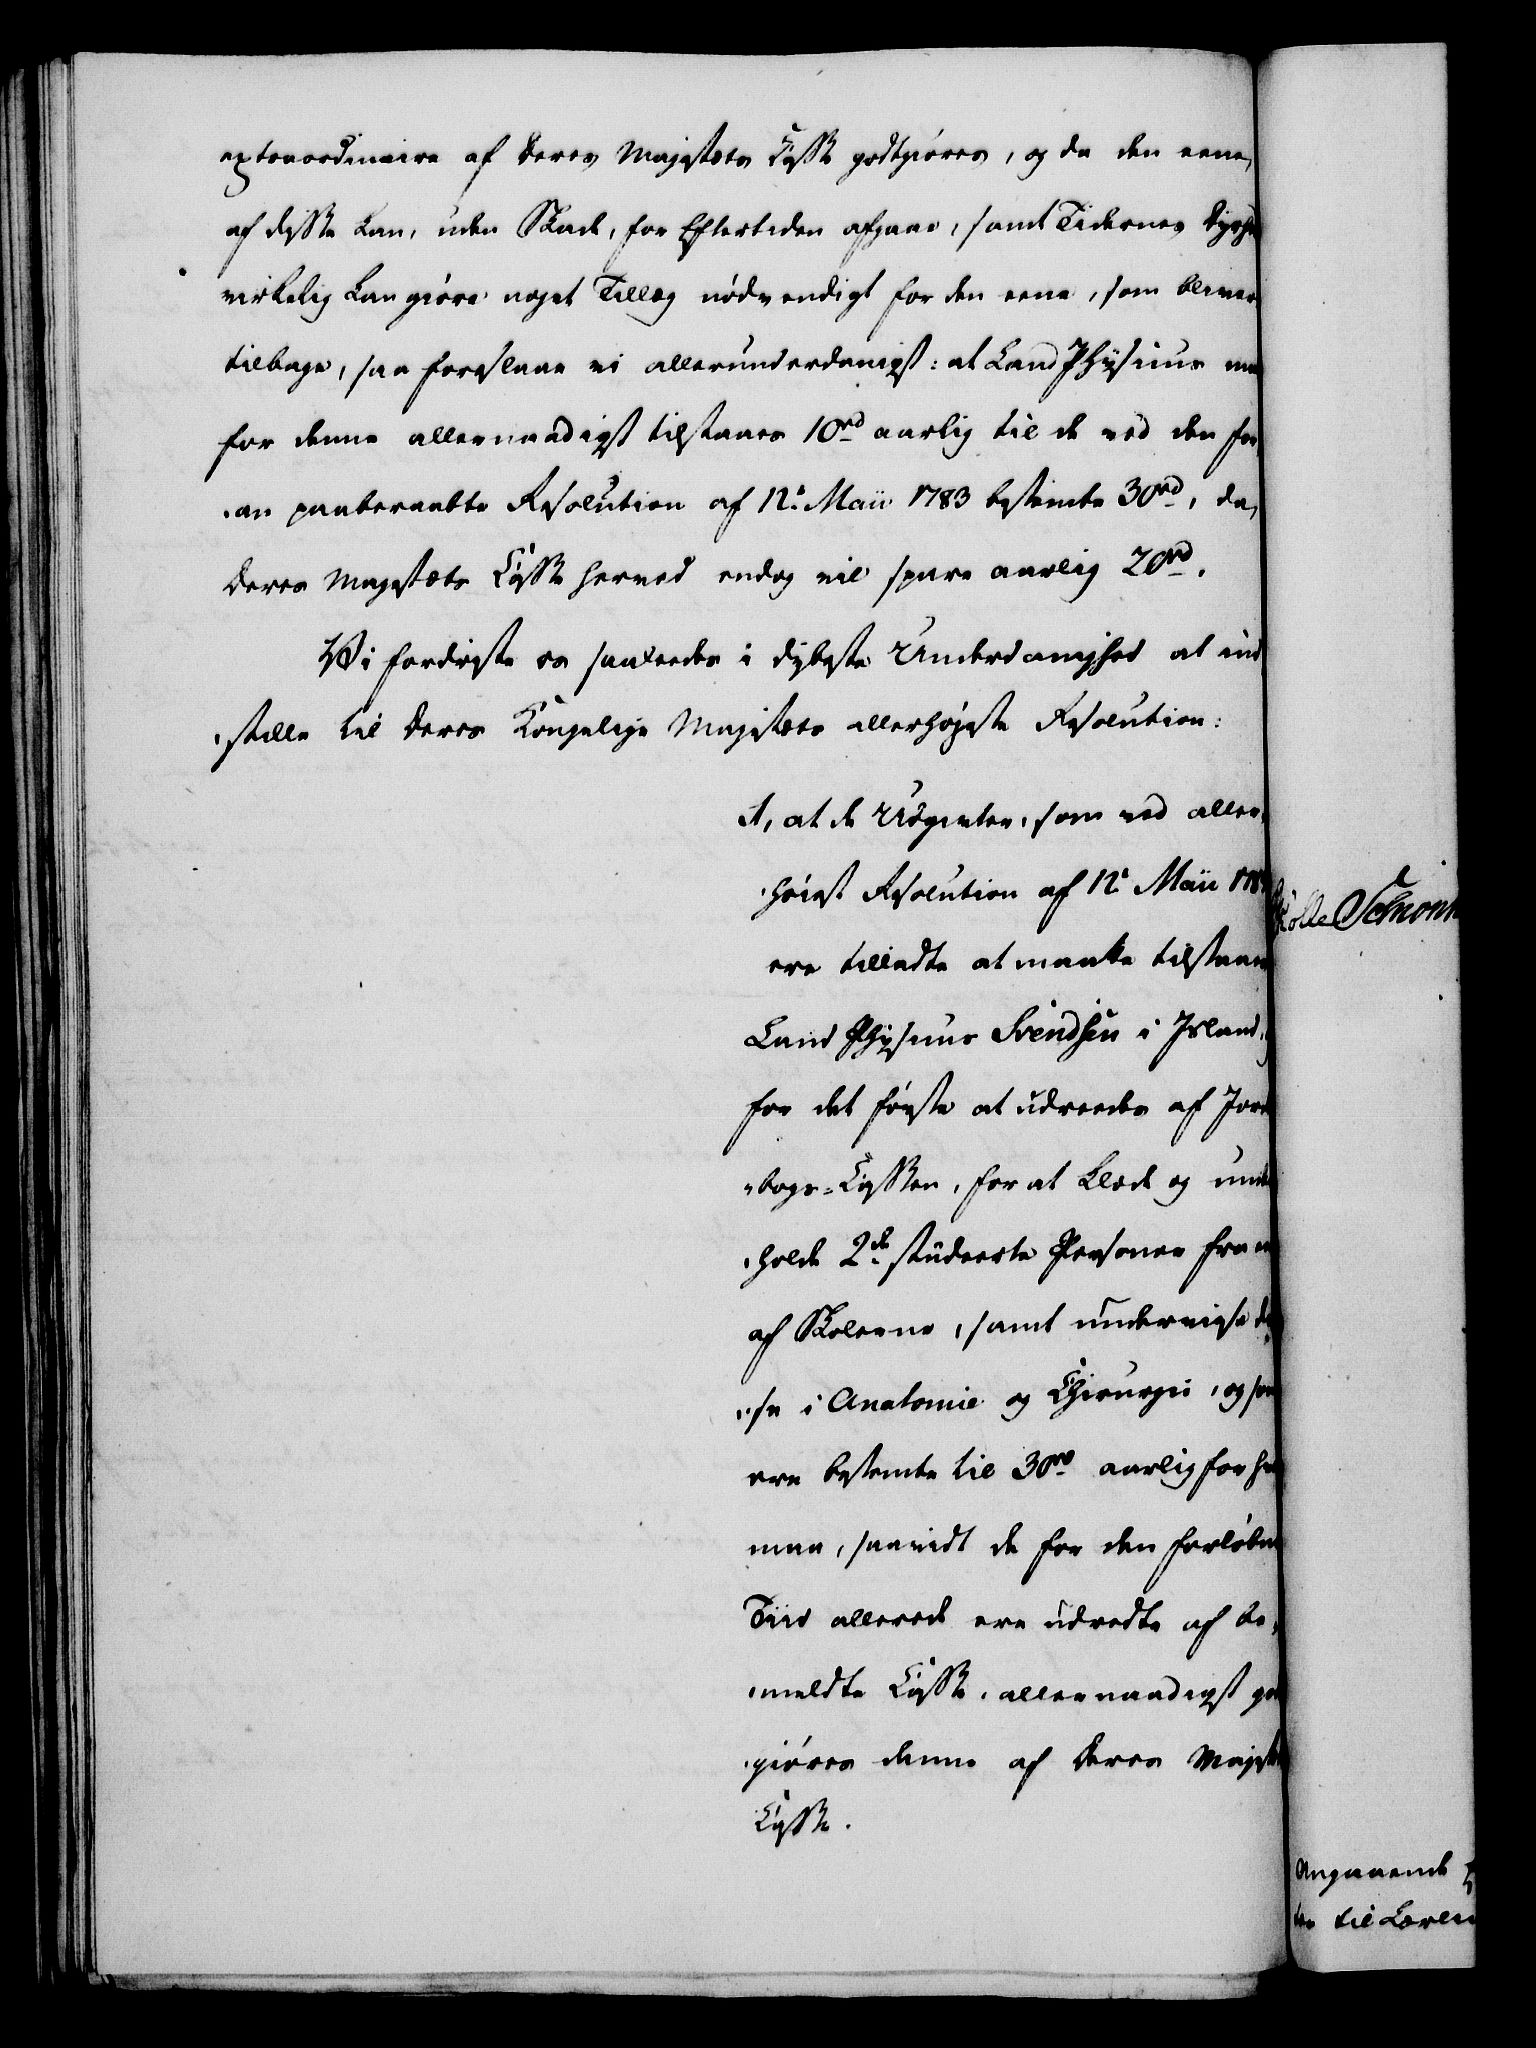 extraordinaire af Deres Majestæts Casse godtgiøres, og da den eene,
af disse kan, uden Skade, for Eftertiden afgaae, samt Tidernes Dyrhe
virkelig kan giøre noget Tillæg nødvendigt for den eene, som bliver
tilbage, saa foreslaae vi allerunderdanigst: at Land Physicus maa
for denne allernaadigst tilstaaes 10rd aarlig til de ved den for
an paaberaabte Resolution af 12t Maii 1783 bestemte 30rd, da,
Deres Majestæts Casse herved endog vil spare aarlig 20rd.
Vi fordriste os saaleedes i dybeste Underdanighed at ind
stille til Deres Kongelige Majestæts allerhøjeste Resolution:
A, at de Udgivter, som ved aller
høiest Resolution af 12t Maii 178
ere tilladte at maatte tilstaaes
Land Physicus Svendsen i Island,
for det første at udreedes af Jorde
bogs-Cassen, for at klæde og under
holde 2de studeerte Personer fra
af Skolerne, samt undervise di
se i Anatomie og Chirurgie, og som
ere bestemte til 30rd aarlig for h
maa, saavidt de for den forløbne
Tiid allerede ere udredte af be
meldte Casse, allernaadigst god
giøres denne af Deres Majest
Casse.
Angaaende
til